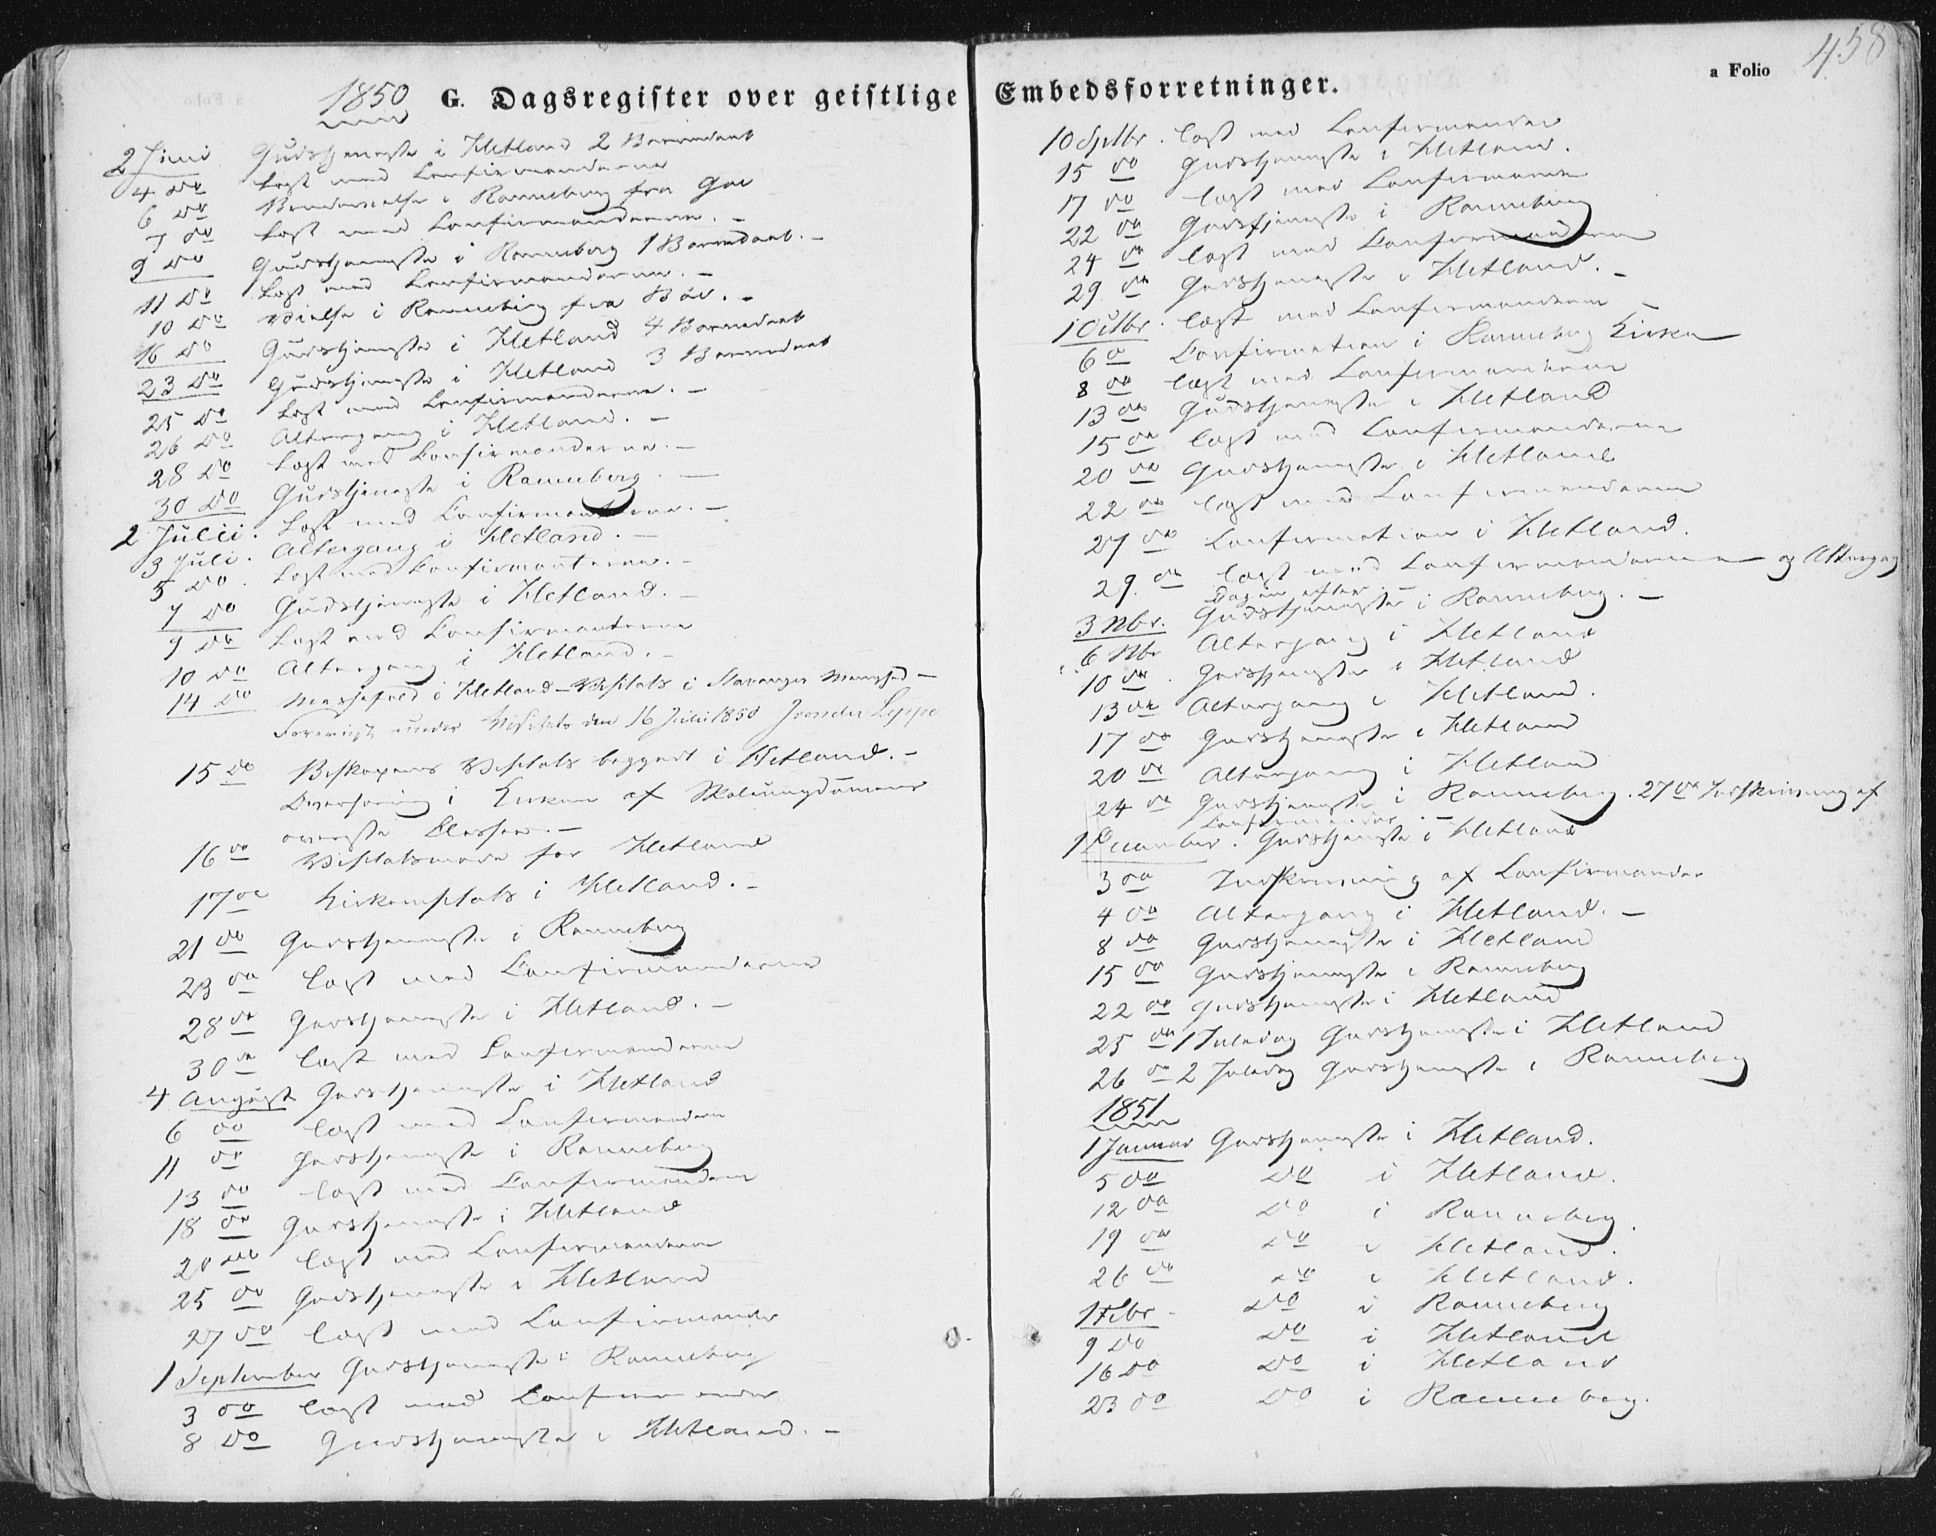 1850 G. Dagsregister over geistlige Embedsforretninger.
a Folio 458
2 Juni Gudstjeneste i Hetland 2 Barnedaab
4 Do Læst med Confirmanderne
6 Do i Ranneberg fra
7 Do Læst med Confirmanderne. -
9 Do Gudstjeneste i Ranneberg 1 Barnedaab. -
11 Do Læst med Confirmanderne. -
10 Do Vielse i Ranneberg fra Bøe. -
16 Do Gudstjeneste i Hetland 4 Barnedaab
23 Do Gudstjeneste i Hetland 3 Barnedaab
25 Do Læst med Confirmanderne. -
26 Do Altergang i Hetland. -
28 Do Læst med Confirmanderne. -
30 Do Gudstjeneste i Ranneberg. -
2 Julii. Læst med Confirmanterne. -
3 Juli. Altergang i Hetland. -
5 Do. Læst med Confirmanterne. -
7 Do Gudstjeneste i Hetland. -
9 Do Læst med Confirmanterne
10 Do Altergang i Hetland. -
14 Do Messefald i Hetland - Visitats i Stavanger Menighed -
Foreviist under Visitats den 16 Juli 1850
15 Do Biskopens Visitats begyndt i Hetland. -
Overhøring i Kirken af Skoleungdommens
øverste Classer. -
16 Do Visitatsmøde for Hetland
17 Do Kirkevisitats i Hetland. -
21 Do Gudstjeneste i Ranneberg
23 Do læst med Confirmanderne
28 Do Gudstjeneste i Hetland. -
30 Do læst med Confirmanderne
4 August Gudstjeneste i Hetland
6 Do læst med Confirmanderne
11 Do Gudstjeneste i Ranneberg
13 Do læst med Confirmanderne
18 Do Gudstjeneste i Hetland
20 Do læst med Confirmanderne
25 Do Gudstjeneste i Hetland
27 Do læst med Confirmander
1 September Gudstjeneste i Ranneberg
3 Do læst med Confirmander
8 Do Gudstjeneste i Hetland. -
10 Sptbr. læst med Confirmander
15 Do Gudstjeneste i Hetland.
17 Do læst med Confirmanderne
22 Do Gudstjeneste i Ranneberg
24 Do læst med Confirmanderne
29 Do Gudstjeneste i Hetland. -
1 Octbr. læst med Confirmanderne -
6 Do Confirmation i Ranneberg Kirke
8 Do læst med Confirmanderne
13 Do Gudstjeneste i Hetland
15 Do læst med Confirmanderne
20 Do Gudstjeneste i Hetland
22 Do læst med Confirmanderne
27 Do Confirmation i Hetland.
29. Do læst med Confirmanderne og Altergang
Dagen efter -
3 Nbr. Gudstjeneste i Ranneberg. -
6 Nbr Altergang i Hetland
10 Do. Gudstjeneste i Hetland
13 Do Altergang i Hetland.
17 Do Gudstjeneste i Hetland
20 Do Altergang i Hetland
24 Do Gudstjeneste i Ranneberg. 27 Do Indskrivning af
Confirmander -
1 December. Gudstjeneste i Hetland
3 Do Indskrivning af Confirmander
4 Do Altergang i Hetland. -
8 Do Gudstjeneste i Hetland
15 Do Gudstjeneste i Ranneberg
22 Do Gudstjeneste i Hetland
25 Do 1 Juledag Gudstjeneste i Hetland
26 Do 2 Juledag Gudstjeneste i Ranneberg
1851
1 Januar Gudstjeneste i Hetland.
5 Do Do i Hetland.
12 Do Do i Ranneberg.
19 Do Do i Hetland.
26 Do Do i Hetland.
1 Febr. Do i Ranneberg
9 Do Do i Hetland
16 Do Do i Hetland
23 Do Do i Ranneberg.